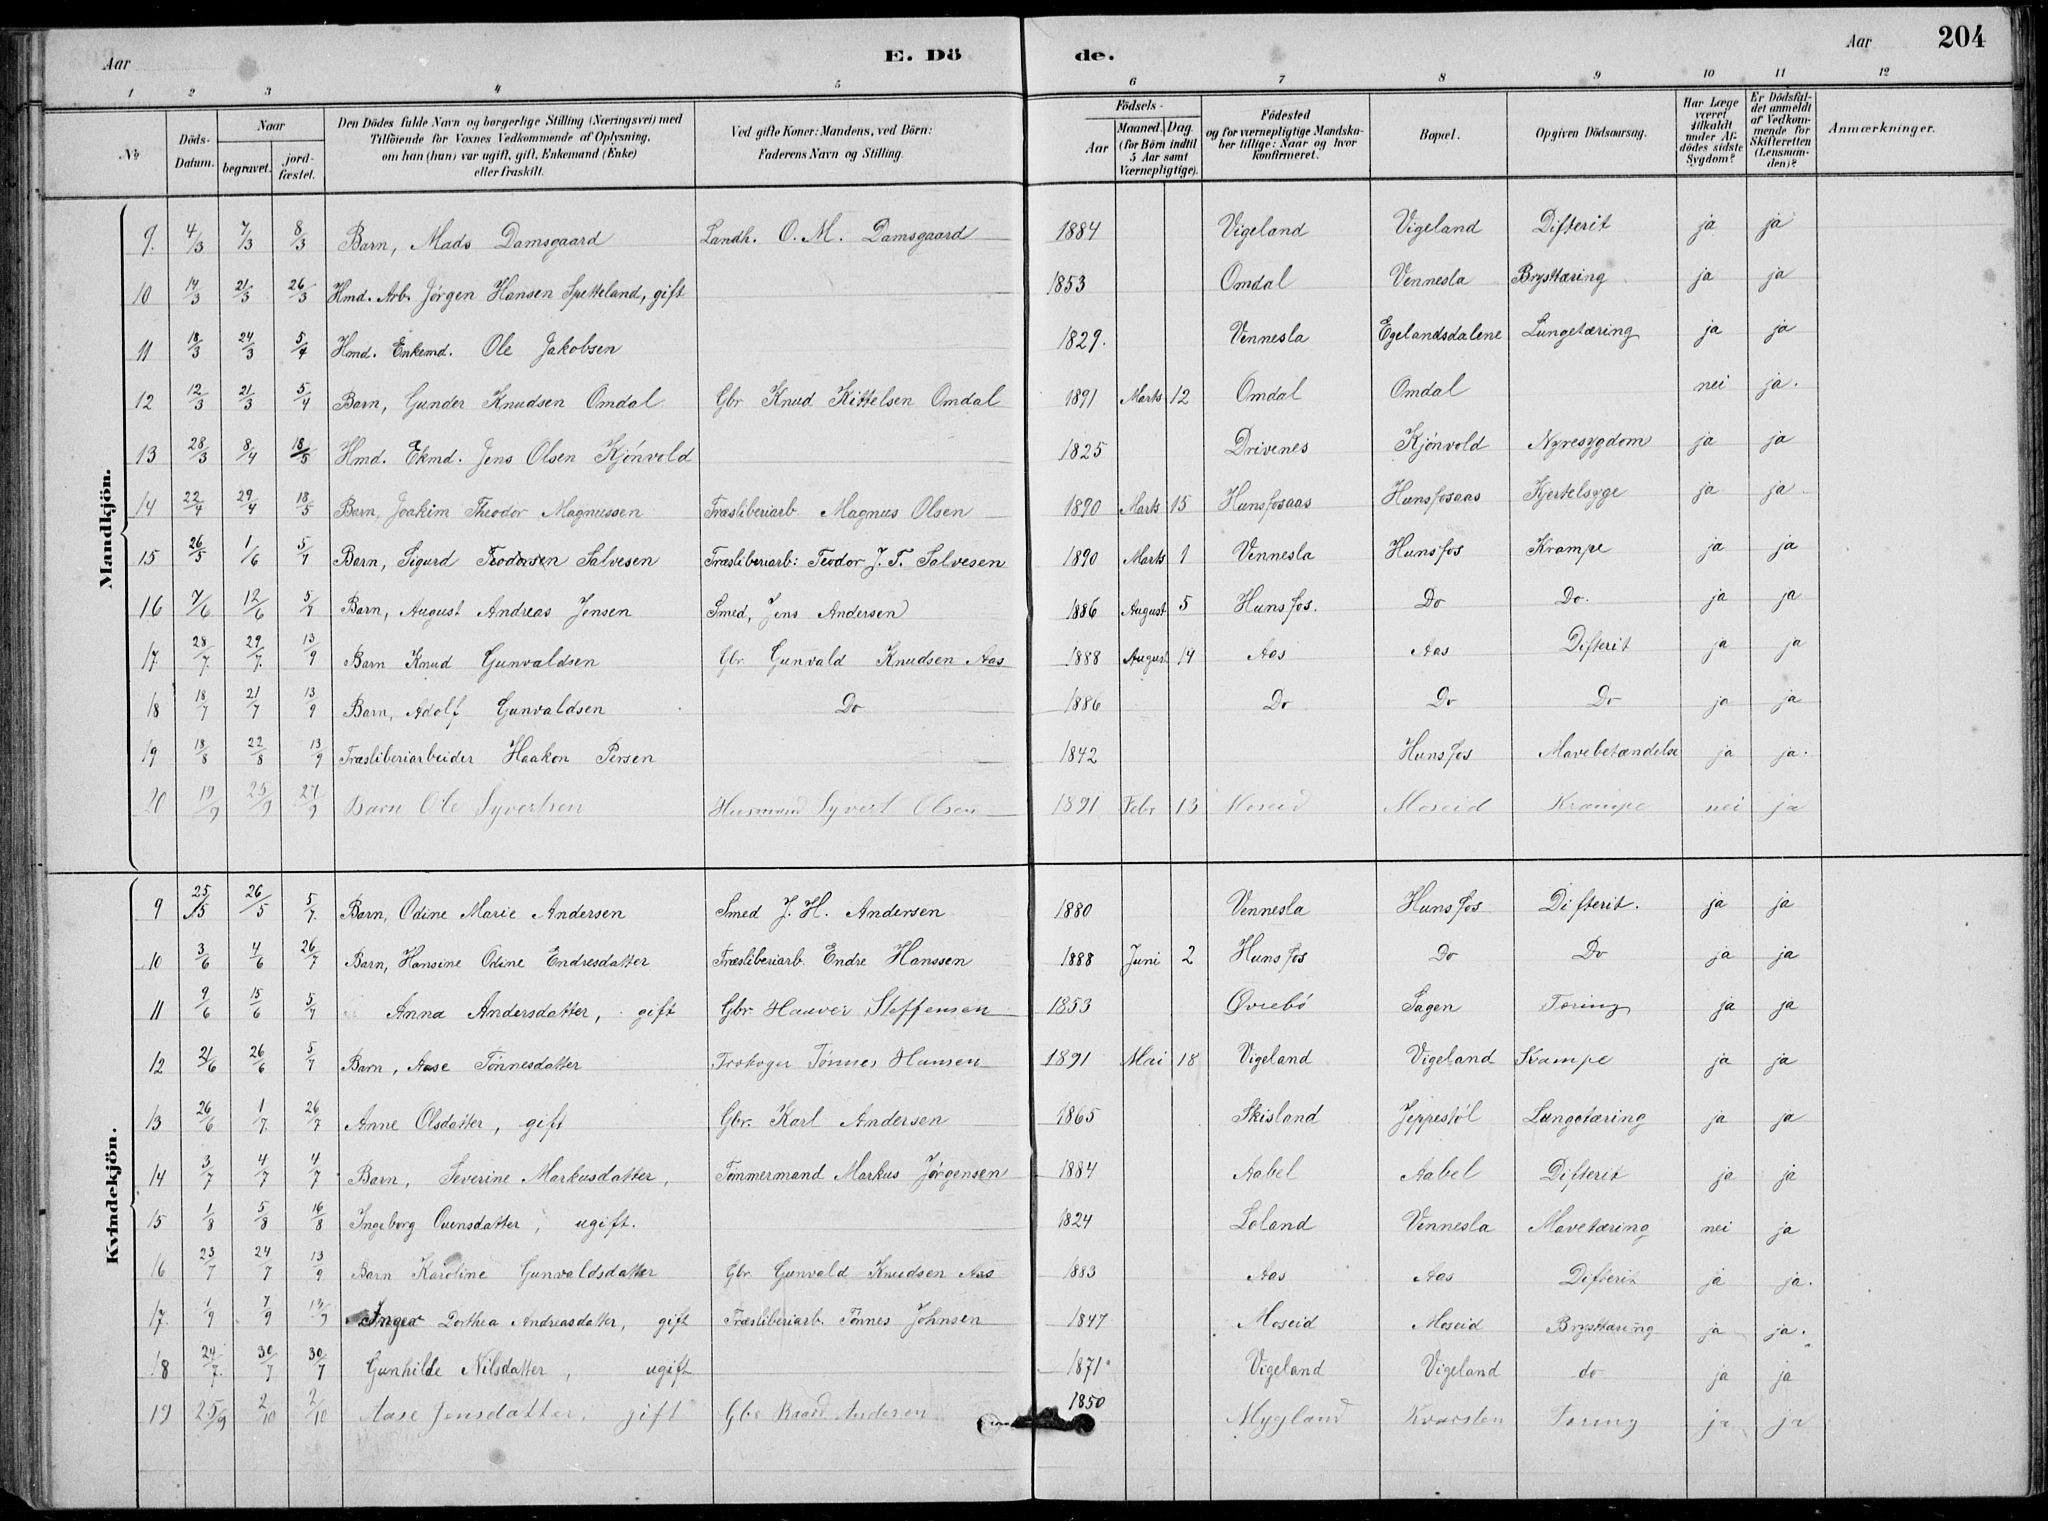 Aar E. Dö de. Aar 204
1 2 3 4 5 6 7 8 9 10 11 12
No Döds-Datum. Naar begravet. jordfæstet. Den Dödes fulde Navn og borgerlige Stilling (Næringsvei) med Tilföiende for Voxnes Vedkommende af Oplysning, om han (hun) var ugift, gift, Enkemand (Enke) eller fraskilt. Ved gifte Koner: Mandens, ved Börn: Faderens Navn og Stilling. Födsels- Aar Maaned. Dag. (for Börn indtil 5 Aar samt Værnepligtige). Födested og for værnepligtige Mandskaber tillige: Naar og hvor konfirmeret. Bopæl. Opgiven Dödsaarsag. Har Læge været tilkaldt under Afdödes sidste Sygdom? Er Dödsfaldet anmeldt af Vedkommende for Skifteretten (Lensmanden)? Anmærkninger.
Mandkjön.
9. 4/3 7/3 8/3 Barn, Mads Damsgaard Landh. O. M. Damsgaard 1884 Vigeland Vigeland Difterit ja ja
10 14/3 21/3 26/3 Hmd. Arb. Jørgen Hansen Spetteland, gift 1853 Omdal Vennesla Brysttæring ja ja
11 18/3 24/3 5/4 Hmd. Enkemd. Ole Jakobsen 1829. Vennesla Egelandsdalene Lungetæring ja ja
12 12/3 21/3 5/4 Barn, Gunder Knudsen Omdal Gbr Knud Kittelsen Omdal 1891 Marts 12 Omdal Omdal nei ja.
13 28/3 8/4 18/5 Hmd. Ekmd. Jens Olsen Kjönvold 1825 Drivenes Kjönvold Nyresygdom ja ja
14 22/4 29/4 18/5 Barn, Joakim Theodor Magnussen Træsliberiarb Magnus Olsen 1890 Marts 15 Hunsfosaas Hunsfosaas Kjertelsyge ja ja
15 26/5 1/6 5/7 Barn, Sigurd Teodorsen Salvesen Træsliberiarb: Teodor J. T. Salvesen 1890 Marts 1 Vennesla Hunsfos Krampe ja ja
16 7/6 12/6 5/7 Barn, August Andreas Jensen Smed, Jens Andersen 1886 August 5 Hunsfos. Do Do. ja ja
17. 28/7 29/7 13/9 Barn Knud Gunvaldsen Gbr Gunvald Knudsen Aas 1888 August 14 Aas Aas Difterit ja ja
18 18/7 21/7 13/9 Barn, Adolf Gunvaldsen Do 1886 Do Do Do ja ja
19 18/8 22/8 13/9 Træsliberiarbeider Haakon Persen 1842 Hunsfos Mavebetændelse ja ja.
20 19/9 25/9 27/9 Barn Ole Syvertsen Husmand Syvert Olsen 1891 Febr 13 Moseid Moseid Krampe nei ja
Kvindekjön.
9 25/5 26/5 5/7 Barn, Odine Marie Andersen Smed J. H. Andersen 1880 Vennesla Hunsfos Difterit. ja ja
10 3/6 4/6 26/7 Barn, Hansine Odine Endresdatter Træsliberiarb. Endre Hanssen 1888 Juni 2 Hunsfos Do Do ja ja
11 9/6 15/6 5/7 Anna Andersdatter, gift Gbr Haaver Steffensen 1853 Øvrebö Sagen Tæring ja ja
12 21/6 26/6 5/7 Barn, Aase Tönnesdatter Tönnes Hansen 1891 Mai 18 Vigeland Vigeland Krampe ja ja
13 26/6 1/7 26/7 Anne Olsdatter, gift Gbr. Karl Andersen 1865 Skisland Jeppestöl Lungetæring ja ja
14 3/7 4/7 4/7 Barn, Severine Markusdatter, Tömmermand Markus Jørgensen 1884 Aabel Aabel Difterit ja ja
15 1/8 5/8 16/8 Ingeborg Ounsdatter, ugift. 1824 Loland Vennesla Mavetæring nei ja
16 23/7 24/7 13/9 Barn Karoline Gunvaldsdatter Gbr Gunvald Knudsen Aas 1883 Aas Aas Difterit ja ja.
17. 1/9 7/9 13/9 Inger Dorthea Andreasdatter, gift Træsliberiarb. Tönnes Johnsen 1847 Moseid Moseid Brysttæring ja ja.
18 24/7 30/7 30/7 Gunhilde Nilsdatter, ugift 1871 Vigeland Vigeland do ja ja
19 25/9 2/10 2/10 Aase Jensdatter, gift Gbr Andersen 1850 Mygland Kvarsten Tæring ja ja